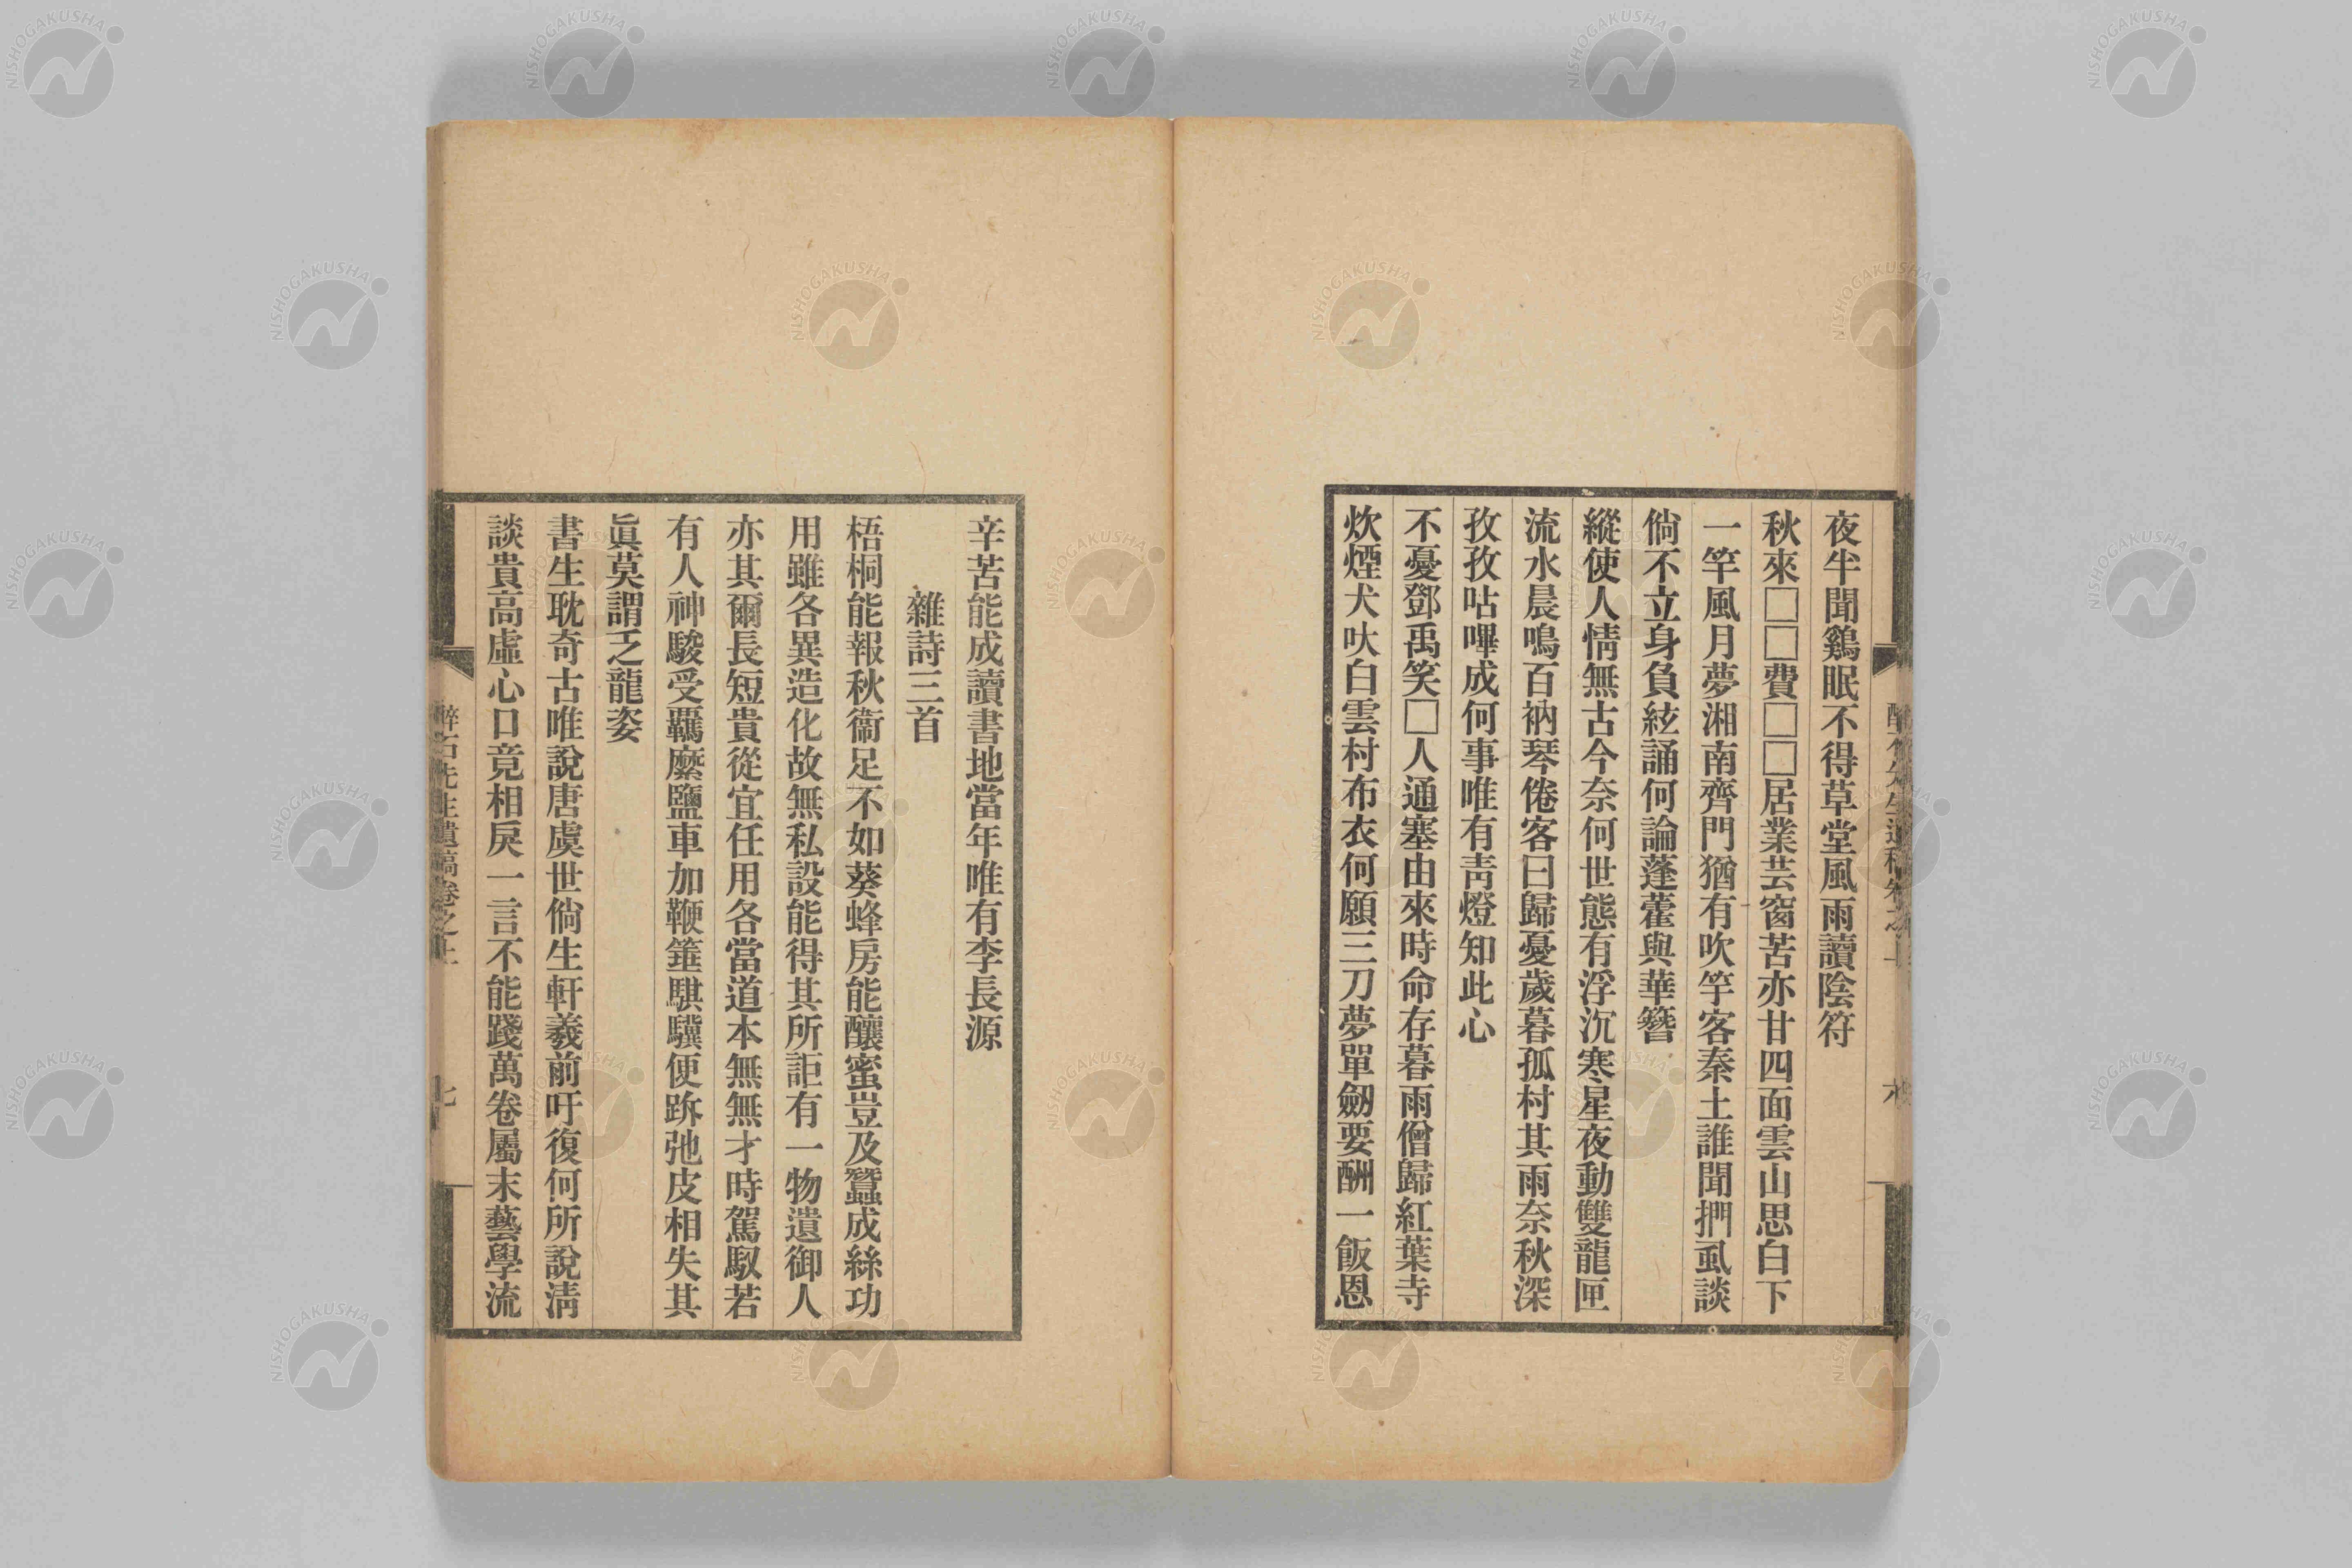 夜半聞鷄眠不得草堂風雨讀陰符
秋來□□費□□居業芸窗苦亦甘四面雲山思白下
一竿風月夢湘南齊門猶有吹竽客秦土誰聞捫虱談
倘不立身負絃誦何論蓬藿與華簪
縱使人情無古今奈何世態有浮沉寒星夜動雙龍匣
流水晨鳴百衲琴倦客曰歸憂歲暮孤村其雨奈秋深
孜孜呫嗶成何事唯有靑燈知此心
不憂鄧禹笑□人通塞由來時命存暮雨僧歸紅葉寺
炊煙犬吠白雲村布衣何願三刀夢單劒要酬一飯恩
辛苦能成讀書地當年唯有李長源
雜詩三首
梧桐能報秋衞足不如葵蜂房能釀蜜豈及蠶成絲功
用雖各異造化故無私設能得其所詎有一物遺御人
亦其爾長短貴從宜任用各當道本無無才時駕馭若
有人神駿受羈縻鹽車加鞭箠騏驥便跅弛皮相失其
眞莫謂乏龍姿
書生耽奇古唯說唐虞世倘生軒羲前吁復何所說淸
談貴高虛心口竟相戾一言不能踐萬卷屬末藝學流
醉石先生遺稿卷之上
七
NISHOGAKUSHA